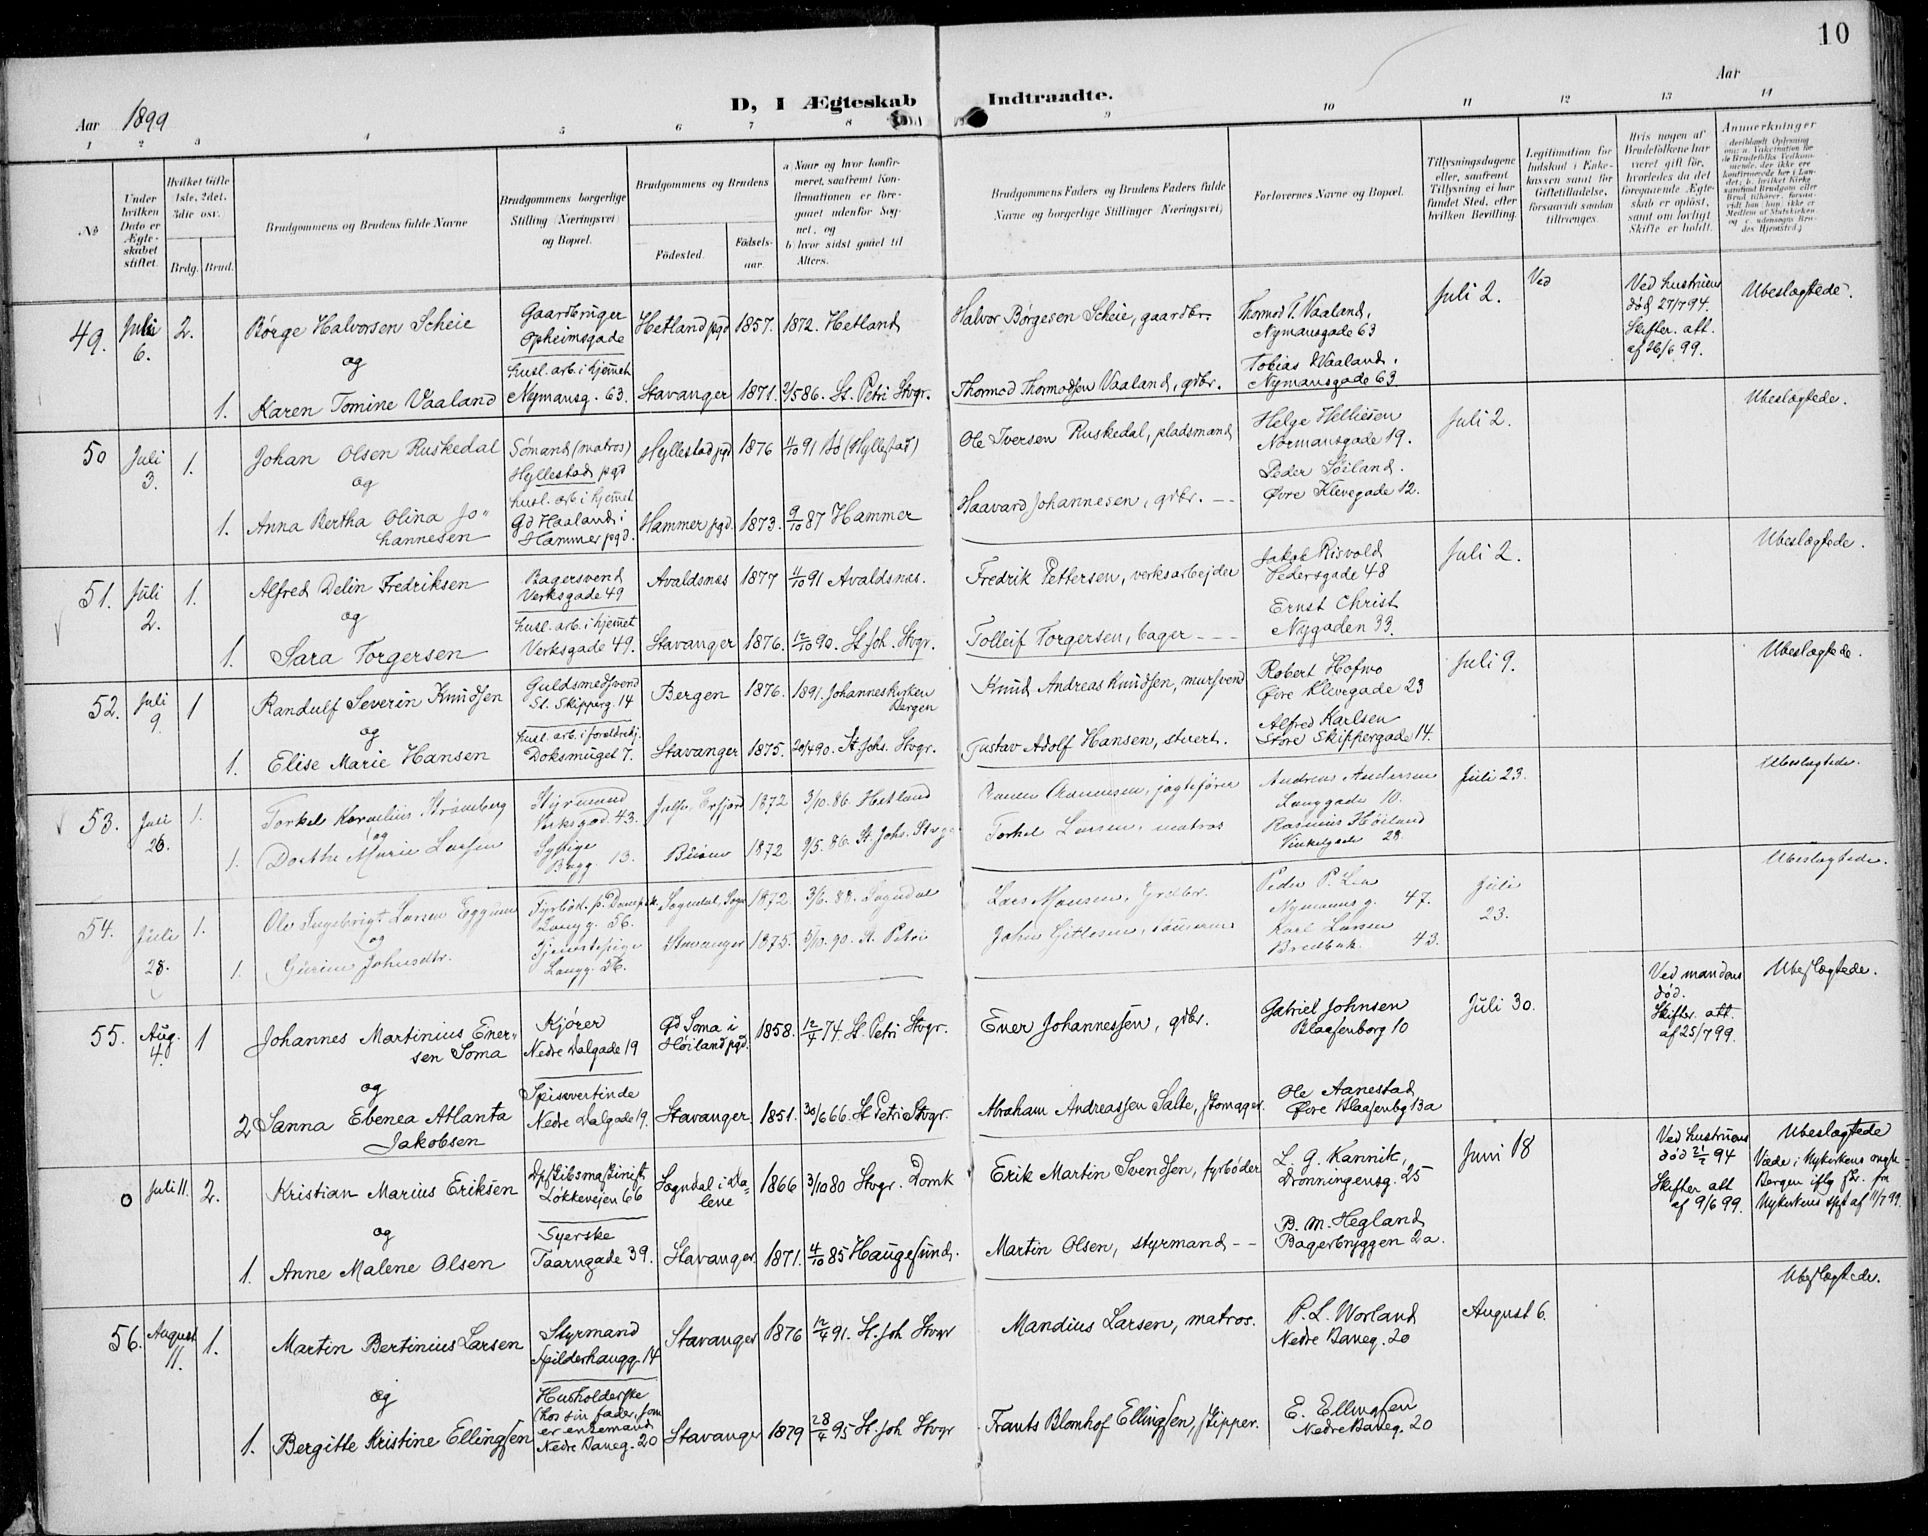 10
D, I Ægteskab Indtraadte.
Aar 1899
Aar
1 2 3 4 5 6 7 8 9 10 11 12 13 14
No
Under hvilken Dato er Ægteskabet stiftet.
Hvilket Gifte 1ste, 2det, 3die osv.
Brdg. Brud.
Brudgommens og Brudens fulde Navne
Brudgommens borgerlige Stilling (Næringsvei) og Bopæl.
Brudgommens og Brudens
Fødested.
Fødselsaar.
a Naar og hvor konfirmeret, saafremt Konfirmationen er foregaaet udenfor Sognet, og
b hvor sidst gaaet til Alters.
Brudgommens Faders og Brudens Faders fulde Navne og borgerlige Stillinger (Næringsvei)
Forlovernes Navne og Bopæl.
Tillysningsdagene eller, saafremt Tillysning ei har fundet Sted, efter hvilken Bevilling.
Legitimation for Indskud i Enkekassen samt for Giftetilladelse, forsaavidt saadan tiltrænges.
Hvis nogen af Brudefolkene har været gift før, hvorledes da det foregaaende Ægteskab er opløst, samt om lovligt Skifte er holdt.
Anmærkninger
49. Juli 6. 2. Børge Halvorsen Scheie
og
1. Karen Tomine Vaaland
Gaardbruger
Opheimsgade
husl. arb. i hjemmet
Nymansg. 63.
Hetland pgd 1857. 1872. Hetland
Stavanger 1871. 2/5 86. St. Petri Stvgr.
Halvor Børgesen Scheie, gaardbr.
Thormod Thormodsen Vaaland, gdbr.
Thormod T. Vaaland,
Nymansgade 63
Tobias Vaaland.
Nymansgade 63
Juli 2.
Ved
Ved hustruens
død 27/7 94.
Skifter. att.
af 26/6 99.
Ubeslægtede.
50 Juli 3. 1. Johan Olsen Ruskedal
og
1. Anna Bertha Olina Jo-
hannesen
Sømand (matros)
Hyllestad pgd
husl. arb i hjemmet
Gd Haaland i
Hammer pgd.
Hyllestad pgd 1876 4/10 91 Bø (Hyllestad)
Hammer pgd. 1873. 9/10 87 Hammer
Ole Iversen Ruskedal, pladsmand
Haavard Johannesen, gdbr.
Helge Helliesen
Normansgade 19.
Peder Søiland.
Øvre Klevegade 12.
Juli 2.
Ubeslægtede.
51. Juli 2. 1. Alfred Delin Fredriksen
og
1. Sara Torgersen
Bagersvend
Verksgade 49
husl. arb. i hjemmet
Verksgade 49.
Avaldsnes 1877 4/10 91 Avaldsnes.
Stavanger 1876. 12/10 90. St. Joh. Stvgr.
Fredrik Pettersen, verksarbejder
Tolleif Torgersen, bager
Jakob Risvold
Pedersgade 48
Ernst Christ
Nygaden 33.
Juli 2.
Ubeslægtede.
52. Juli 9. 1 Randulf Severin Knudsen
og
1. Elise Marie Hansen
Guldsmedsvend
St. Skipperg. 14
husl. arb. i foreldrehj.
Doksmuget 7.
Bergen 1876. 1891. Johanneskirken
Bergen
Stavanger 1875. 20/4 90. St Johs. Stvgr.
Knud Andreas Knudsen, mursvend
Gustav Adolf Hansen, stuert.
Robert Hofmo
Øvre Klevegade 23
Alfred Karlsen
Store Skippergade 14.
Juli 9.
Ubeslægtede.
53. Juli 26. 1. Torkel Kornelius Strømberg
og
1. Dorthe Marie Larsen
Styrmand
Verksgad. 43.
Sypige
Bagg 13.
Jelse, Erfjord 1872 3/10. 86. Hetland
1872 9/5. 86. St. Johs. Stvgr
jagtefører
Torkel Larsen, matros
Andreas Andersen
Langgade 10.
Rasmus Høiland
Vinkelgade 28.
Juli 23.
Ubeslægtede.
54. Juli 28. 1. Ole Ingebrigt Larsen Eggum
og
1. Gurine Johnsdtr.
Fyrbød. p. Dampsk.
Langg. 56.
Tjenestepige
Langg. 56.
Sogndal, Sogn 1872. 3/6. 88. Sogndal
Stavanger 1875. 5/10. 90. St. Petri
Lars Monsen, Grdbr.
John Gitlesen, sømand
Peder P. Lea
Nymansg. 47.
Karl Larsen
Bredbak. 43.
Juli
23.
Ubeslægtede.
55. Aug. 4. 1 Johannes Martinius Ener-
sen Soma
og
2 Sanna Ebenea Atlanta
Jakobsen
Kjører
Nedre Dalgade 19
Spisevertinde
Nedre Dalgade 19.
Gd Soma i
Høiland pgd. 1858. 12/4 74. St. Petri Stvgr.
Stavanger 1851. 30/6 66. St Petri Stvgr.
Ener Johannessen, gdbr.
Abraham Andreassen Salte, skomager.
Gabriel Johnsen
Blaasenborg 10
Ole Aanestad
Øvre Blaasenbg 13a
Juli 30.
Ved mandens
død.
Skifter. att.
af 25/7 99.
Ubeslægtede.
0 Juli 11. 2. Kristian Marius Eriksen
og
1. Anne Malene Olsen
Løkkeveien 66
Syerske
Taarngade 39.
Sogndal i Da-
lene 1866 3/10 80 Stvgr. Domk
Stavanger 1871. 4/10 85 Haugesund.
Erik Martin Svendsen, fyrbøder
Martin Olsen, styrmand
L. G. Kannik,
Dronningensg. 25
B. M. Hegland
Bagerbryggen 2a.
Juni 18
Ved hustruens
død 2/2 94
Skifter att
af 9/6 99.
Ubeslægtede
Viede i Nykirkens mgh
Bergen iflg skr. fra
Nykirkens spr af 11/7 99.
56. August 11. 1. Martin Bertinius Larsen
og
1. Bergitte Kristine Ellingsen
Styrmand
Spilderhaugg. 14
Husholderske
(hos sin fader, som
er enkemand
Nedre Baneg. 20
Stavanger 1876 12/4 91. St. Joh Stvgr
Stavanger 1879 28/4 95 St. Joh Stvgr
Mandius Larsen, matros.
Frants Blomhof Ellingsen, skipper.
P. L. Worland
Nedre Baneg. 20
E. Ellingsen
Nedre Baneg. 20
August 6.
Ubeslægtede.